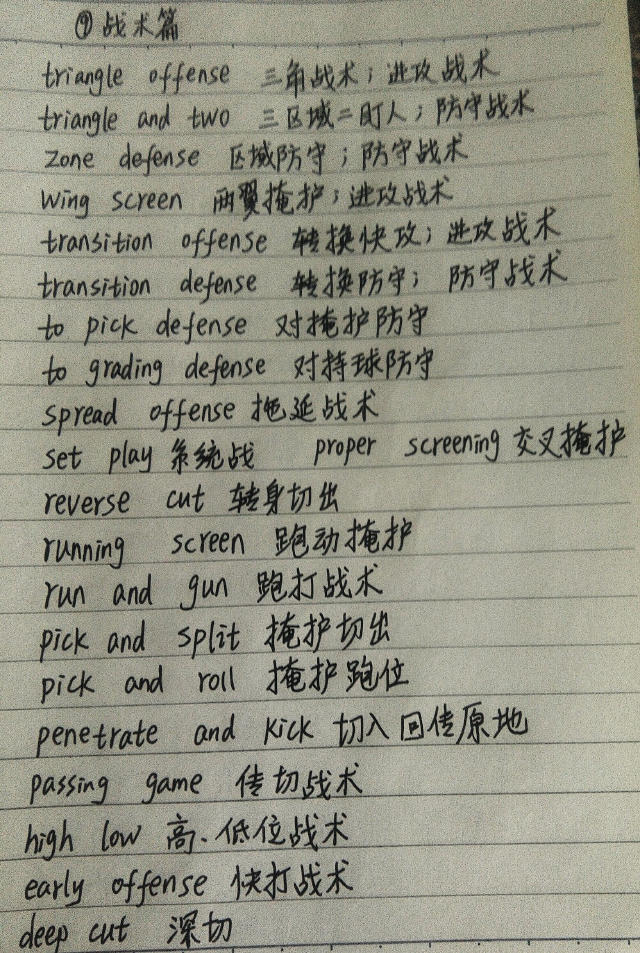 ⑨战术篇
triangle offense 三角战术；进攻战术
triangle and two 三区域二盯人；防守战术
zone defense 区域防守；防守战术
wing screen 两翼掩护；进攻战术
transition offense 转换快攻；进攻战术
transition defense 转换防守；防守战术
to pick defense 对掩护防守
to grading defense 对持球防守
spread offense 拖延战术
set play 系统战 proper screening 交叉掩护
reverse cut 转身切出
running screen 跑动掩护
run and gun 跑打战术
pick and split 掩护切出
pick and roll 掩护跑位
penetrate and kick 切入回传原地
passing game 传切战术
high low 高.低位战术
early offense 快打战术
deep cut 深切